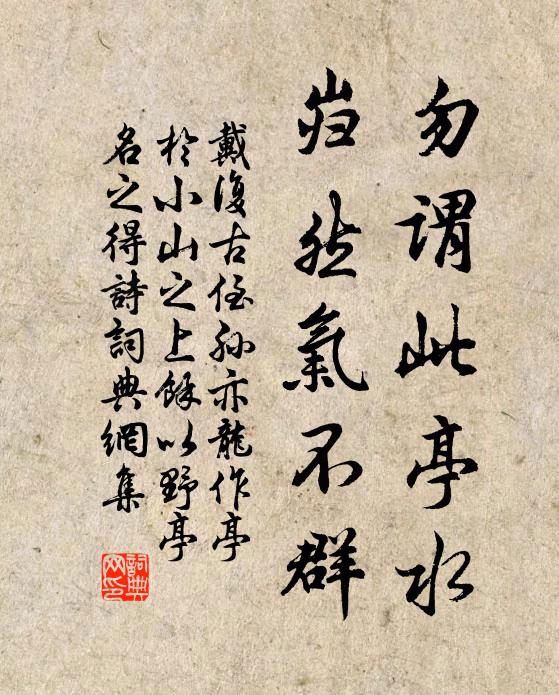 勿謂此亭水
岿然氣不群
戴復古侄孫亦龍作亭
於小山之上餘以野亭
名之得詩詞典網集
詞典网印